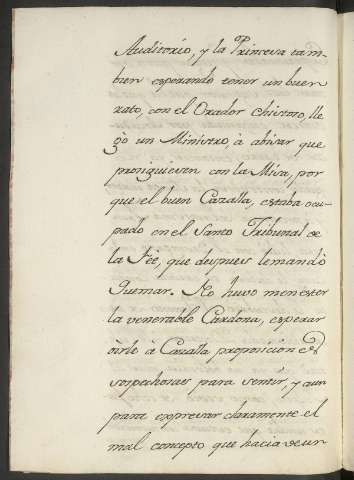 Auditorio, y la Princesa tam-
bien esperando tener un buen
rato, con el Orador Chistoso, lle
gò un Ministro, à abisar que
prosiguiesen con la Misa, por
que el buen Cazalla, estaba ocu-
pado en el Santo Tribunal de
la Feè, que despues le mandò
Quemar. No huvo menester
la venerable Cardona, esperar
òirle à Cazalla, proposiciones
sospechosas para sentir, y aun
para expresar claramente el
mal concepto que hacia de un